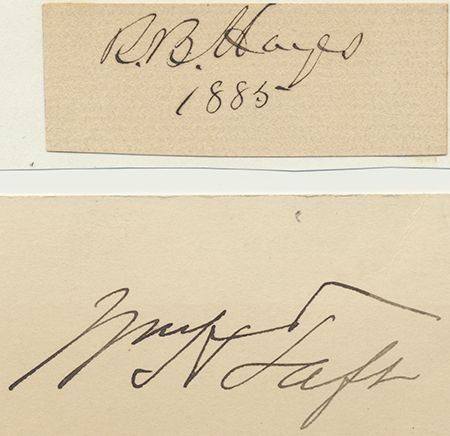 R.B. Hayes
1885
Wm H Taft